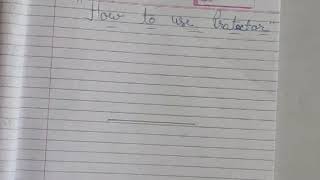 "How to use Pratector"